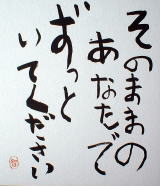 そのままの
あなたで
ずっと
いてください